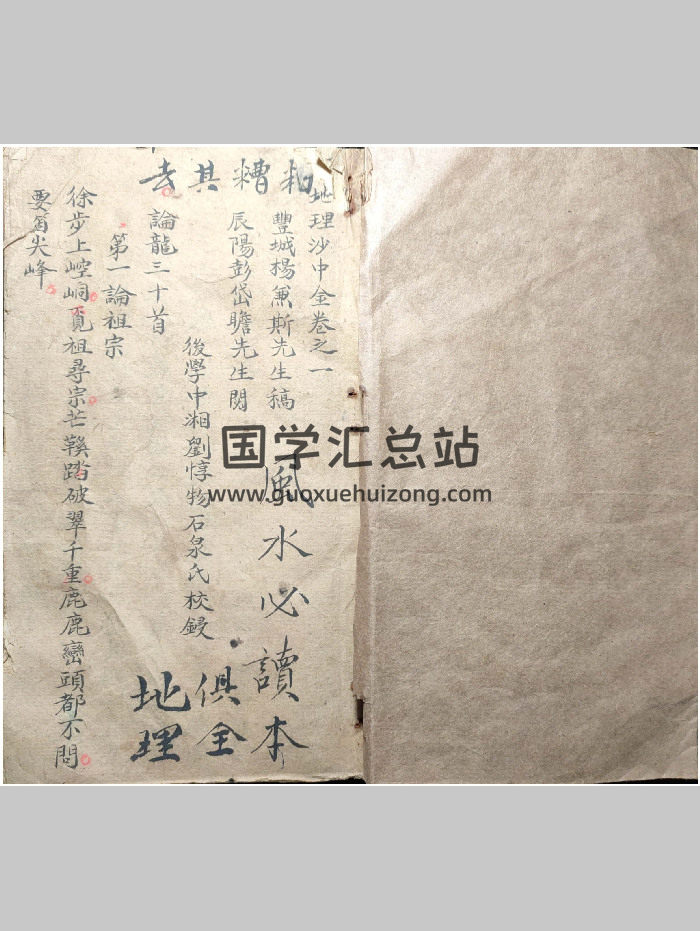 去其糟粕
地理沙中金卷之一
豐城楊斯先生稿
辰陽彭岱瞻先生閱
後學中湘劉惇物石泉氏校鋟
風水必讀本
地理俱全
論龍三十首
第一論祖宗
徐步上崆峒覓祖尋宗芒鞵踏破翠千重鹿鹿巒頭都不問
要箇尖峰
国学汇总站
www.guoxuehuizong.com